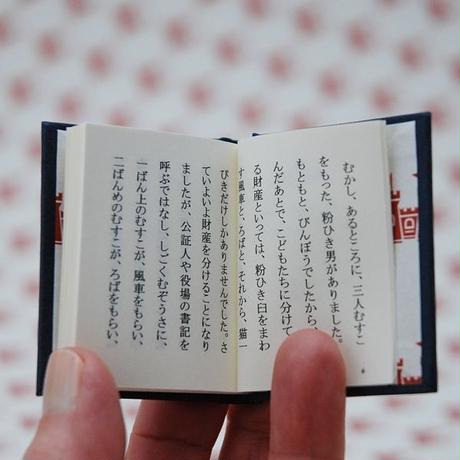 むかし、あるところに、三人むすこ
をもった、粉ひき男がありました。
もともと、びんぼうでしたから、
んだあとで、こどもたちに分けて
る財産といっては、粉ひき臼をまわ
す風車と、ろばと、それから、猫一
ぴきだけしかありませんでした。さ
ていよいよ財産を分けることになり
ましたが、公証人や役場の書記を
呼ぶではなし、しごくむぞうさに、
一ばん上のむすこが、風車をもらい、
二ばんめのむすこが、ろばをもらい、